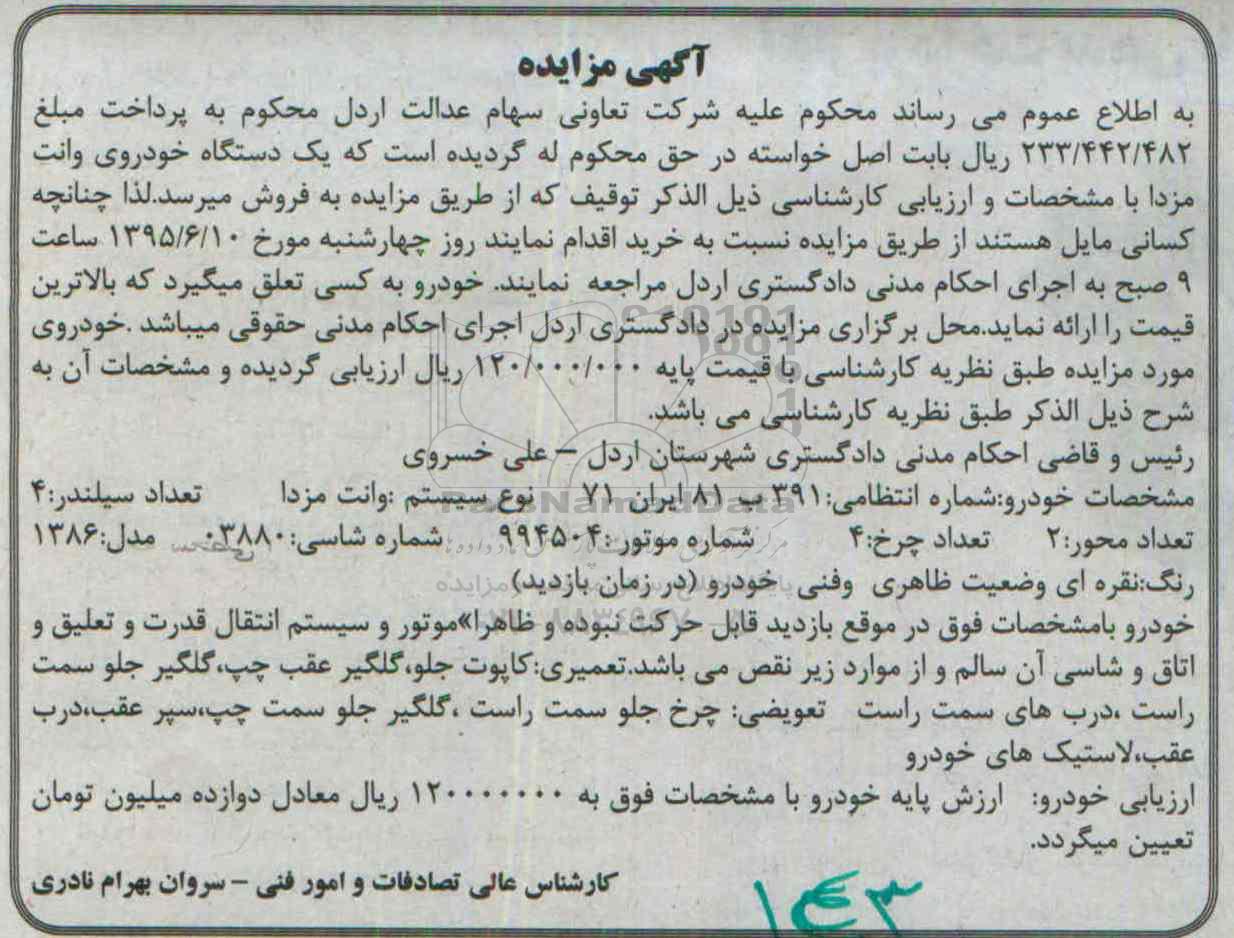 آگهی مزایده
به اطلاع عموم می رساند محکوم علیه شرکت تعاونی سهام عدالت اردل محکوم به پرداخت مبلغ
۲۳۳/۴۴۲/۴۸۲ ریال بابت اصل خواسته در حق محکوم له گردیده است که یک دستگاه خودروی وانت
مزدا با مشخصات و ارزیابی کارشناسی ذیل الذکر توقیف که از طریق مزایده به فروش میرسد.لذا چنانچه
کسانی مایل هستند از طریق مزایده نسبت به خرید اقدام نمایند روز چهارشنبه مورخ ۱۳۹۵/۶/۱۰ ساعت
۹ صبح به اجرای احکام مدنی دادگستری اردل مراجعه نمایند. خودرو به کسی تعلق میگیرد که بالاترین
قیمت را ارائه نماید.محل برگزاری مزایده در دادگستری اردل اجرای احکام مدنی حقوقی میباشد .خودروی
مورد مزایده طبق نظریه کارشناسی با قیمت پایه ۱۲۰/۰۰۰/۰۰۰ ریال ارزیابی گردیده و مشخصات آن به
شرح ذیل الذکر طبق نظریه کارشناسی می باشد.
رئیس و قاضی احکام مدنی دادگستری شهرستان اردل – علی خسروی
مشخصات خودرو:شماره انتظامی:۳۹۱ ب ۸۱ ایران ۷۱ نوع سیستم :وانت مزدا تعداد سیلندر:۴
تعداد محور:۲ تعداد چرخ:۴ شماره موتور :۹۹۴۵۰۴ شماره شاسی:۰۳۸۸۰ مدل:۱۳۸۶
رنگ:نقره ای وضعیت ظاهری وفنی خودرو (در زمان بازدید)
خودرو بامشخصات فوق در موقع بازدید قابل حرکت نبوده و ظاهرا»موتور و سیستم انتقال قدرت و تعلیق و
اتاق و شاسی آن سالم و از موارد زیر نقص می باشد.تعمیری:کاپوت جلو،گلگیر عقب چپ،گلگیر جلو سمت
راست ،درب های سمت راست تعویضی: چرخ جلو سمت راست ،گلگیر جلو سمت چپ،سپر عقب،درب
عقب،لاستیک های خودرو
ارزیابی خودرو: ارزش پایه خودرو با مشخصات فوق به ۱۲۰۰۰۰۰۰۰ ریال معادل دوازده میلیون تومان
تعیین میگردد.
کارشناس عالی تصادفات و امور فنی – سروان بهرام نادری
۱۴۳
ParsNamadData